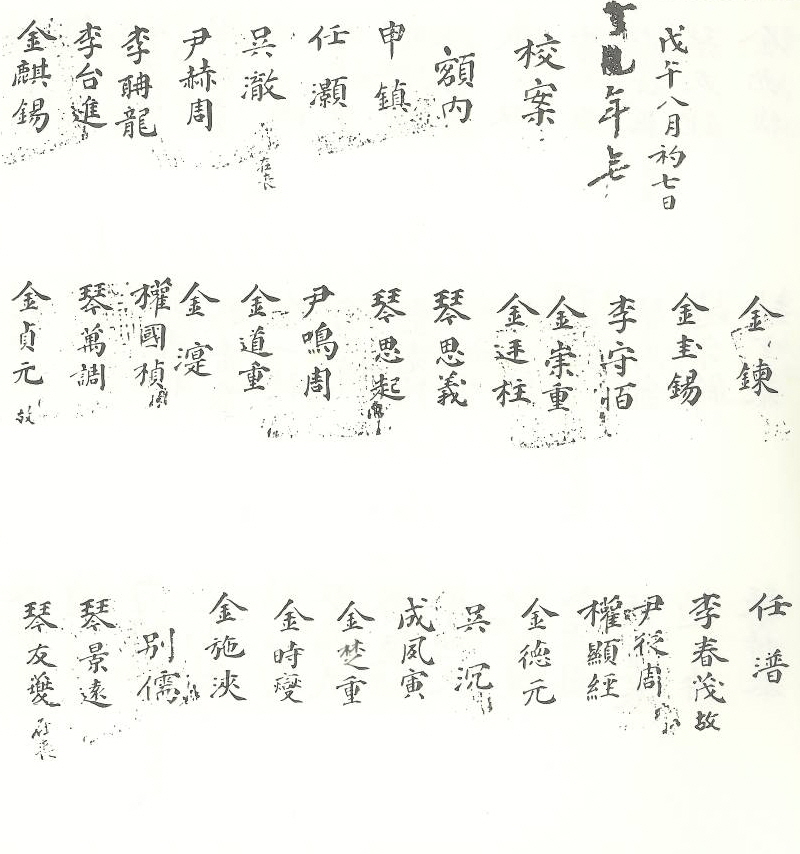 戊午八月初七日
年
校案
額內
申鎮
任灝
吳澈 在喪
尹赫周
李聃龍
李台進
金麒錫
金鍊
金圭錫
李守恒
金崇重
金廷柱
琴思義
琴思起
尹鳴周
金道重
金寔
權國楨
琴萬調
金貞元 故
任潽
李春茂 故
尹從周
權顯經
金德元
吳沉
成夙寅
金楚重
金時燮
金施浹
別儒
琴景遠
琴友夔 在喪